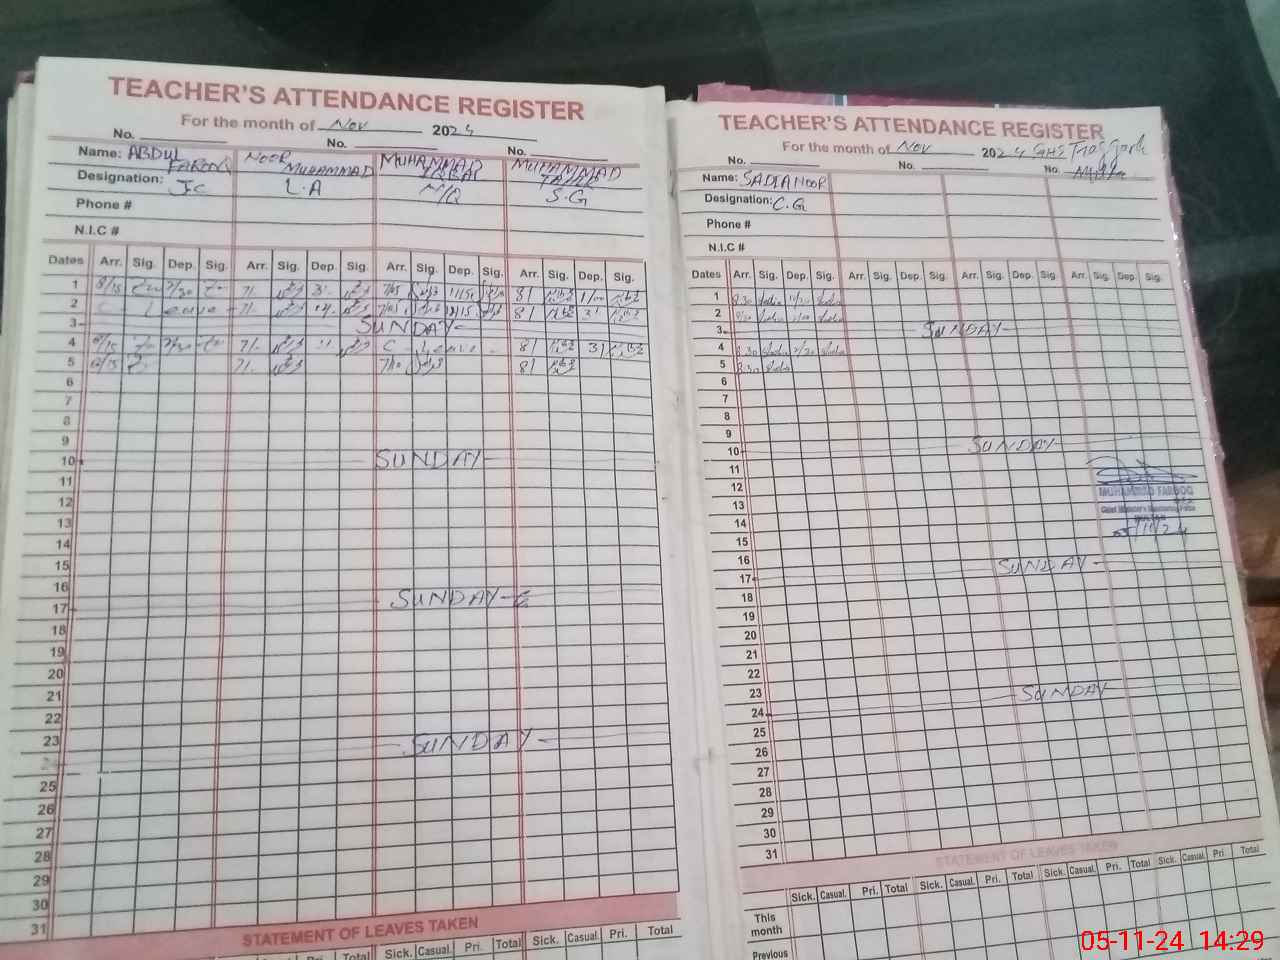 TEACHER'S ATTENDANCE REGISTER
For the month of Nov 2024
No. No. No.
Name: ABDUL FAROOQ NOOR MUHAMMAD MUHAMMAD IQBAL MUHAMMAD
Designation: J.C L.A N/Q S.G
Phone #
N.I.C #
Dates Arr. Sig. Dep. Sig. Arr. Sig. Dep. Sig. Arr. Sig. Dep. Sig. Arr. Sig. Dep. Sig.
1 8/15 7/30 7/. 8/ 1/00
2 C Leave 7/. 8/
3 SUNDAY
4 8/15 7/. C - Leave 8/ 3/
5 8/15 7/. 7/10 8/
6
7
8
9
10 SUNDAY
11
12
13
14
15
16
17 SUNDAY
18
19
20
21
22
23
24 SUNDAY
25
26
27
28
29
30
31
STATEMENT OF LEAVES TAKEN
Sick. Casual. Pri. Total Sick. Casual. Pri. Total
TEACHER'S ATTENDANCE REGISTER
For the month of Nov 2024 GHS
No. No. No.
Name: SADIA NOOR
Designation: C.G
Phone #
N.I.C #
Dates Arr. Sig. Dep. Sig. Arr. Sig. Dep. Sig. Arr. Sig. Dep. Sig. Arr. Sig. Dep. Sig.
1 8.30 Sadia Sadia
2 Sadia Sadia
3 SUNDAY
4 8.30 Sadia 2/30 Sadia
5 8.30 Sadia
6
7
8
9
10 SUNDAY
11
12
MUHAMMAD FAROOQ
13
14
05/11/24
15
16
17 SUNDAY
18
19
20
21
22
23
24 SUNDAY
25
26
27
28
29
30
31
STATEMENT OF LEAVES TAKEN
Sick. Casual. Pri. Total Sick. Casual. Pri. Total Sick. Casual. Pri. Total Sick. Casual. Pri Total
This month
Previous
05-11-24 14:29